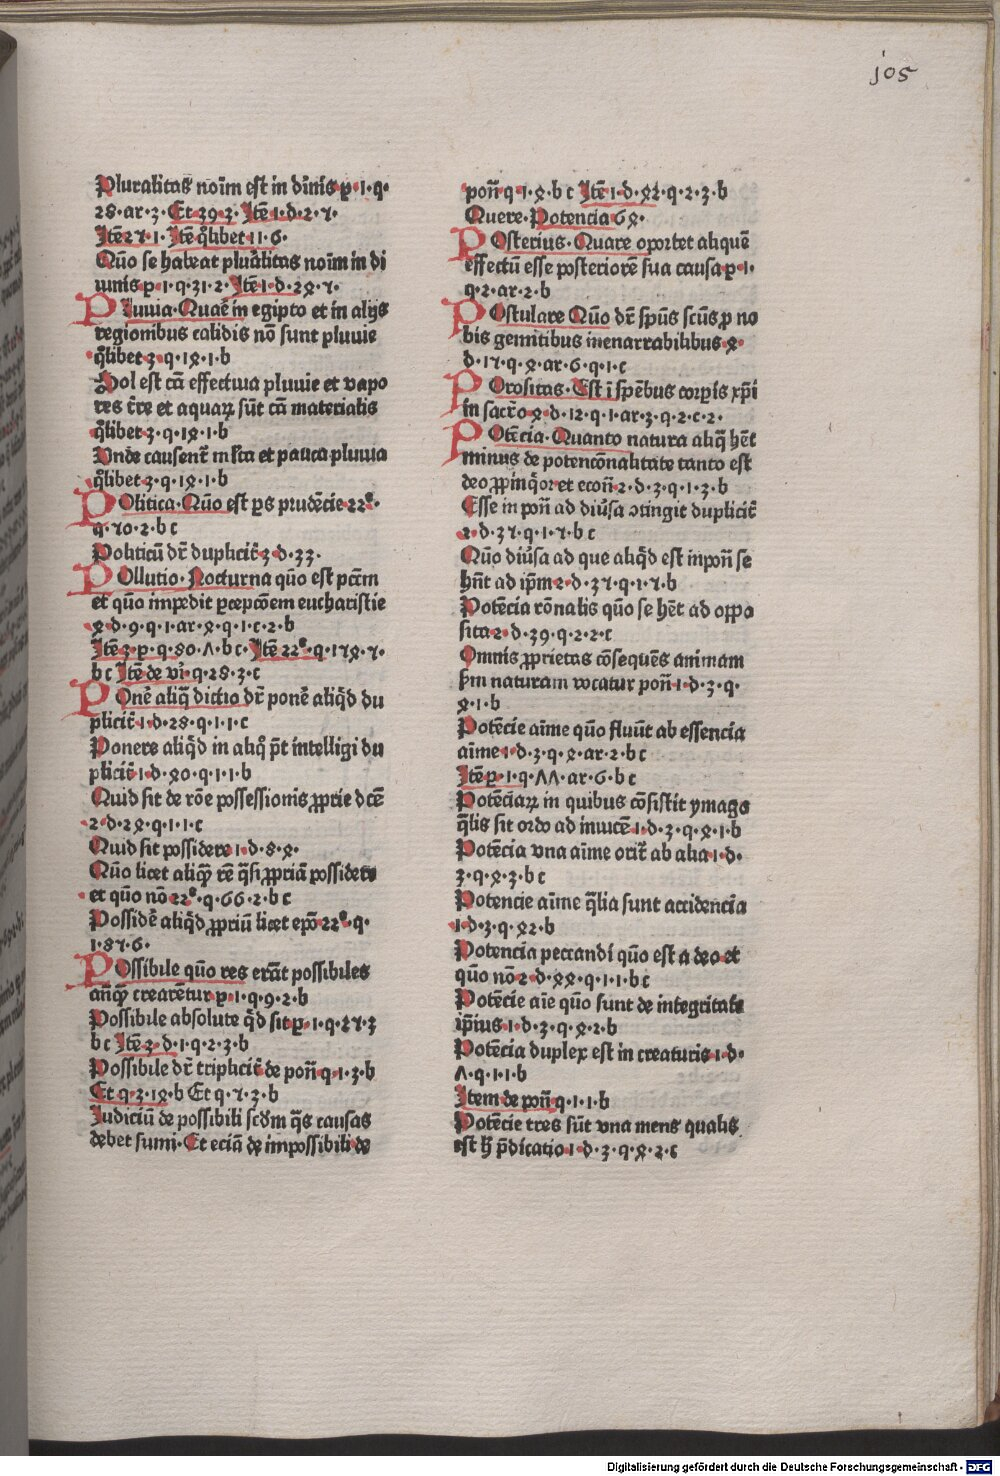 jos
Pluralitas noīm est in diuīs p·1·q·
28·ar·3·Et 39·3·Itē 1·d·2·7·
Itē 27·1·Itē q̄libet 11·6·
Qūo se habeat plūalitas noīm in di
uinis p·1·q·31·2·Itē 1·d·28·7·
PLuuia·Quaē in egipto et in alijs
regionibus calidis nō sunt pluuie
q̄libet 3·q·18·1·b
Sol est cā effectiua pluuie et vapo
res t̄re et aquaꝝ sūt cā materialis
q̄libet 3·q·18·1·b
Vnde causent̄ ml̄ta et pauca pluuia
q̄libet 3·q·18·1·b
POlitica·Qūo est ꝑs prudēcie 22ᵉ·
q·70·2·b c
Politicū dr̄ duplicit̄ 3·d·33·
POllutio·Nocturna qūo est pctm̄
et qūo impedit ꝑcepcōem eucharistie
8·d·9·q·1·ar·8·q·1·c·2·b
Itē 3·p·q·80·Λ·b c·Itē 22ᵉ·q·178·7·
b c Itē de vi·q·28·3·c
POnē aliq̄ dictio dr̄ ponē aliq̄d du
plicit̄ 1·d·28·q·1·1·c
Ponere aliq̄d in aliq̊ p̄t intelligi du
plicit̄ 1·d·80·q·1·1·b
Quid sit de rōe possessionis ꝓprie dcē
2·d·28·q·1·1·c
Quid sit possidere 1·d·8·8·
Qūo licet aliqꝫ rē q̄si ꝓpriā possidere
et qūo nō 22ᵉ·q·66·2·b c
Possidē aliq̄d ꝓpriū licet ep̄o 22ᵉ·q·
1·87·6·
POssibile qūo res erāt possibiles
an̄qꝫ crearētur p·1·q·9·2·b
Possibile absolute q̄d sit p·1·q·27·3
b c Itē 3·d·1·q·2·3·b
Possibile dr̄ triplicit̄ de pon̄ q·1·3·b
Et q·3·18·b Et q·7·3·b
Iudiciū de possibili scd̄m q̄s causas
debet sumi·Et eciā de impossibili de
pon̄ q·1·8·b c Itē 1·d·82·q·2·3·b
Quere·Potencia 68·
POsterius·Quare oportet aliquē
effectū esse posteriorē sua causa p·1·
q·2·ar·2·b
POstulare Qūo dr̄ sp̄us sc̄us ꝓ no
bis gemitibus inenarrabilibus 8·
d·17·q·8·ar·6·q·1·c
POrositas·Est ī sp̄ebus corꝑis xp̄i
in sacr̄o 8·d·12·q·1·ar·3·q·2·c·2·
POtēcia·Quanto natura aliq̄ hēt
minus de potencōnalitate tanto est
deo ꝓpinq̄or et econ̄ 2·d·3·q·1·3·b
Esse in pon̄ ad diūsa ɔtingit duplicit̄
2·d·37·q·1·7·b c
Qūo diūsa ad que aliq̄d est in pon̄ se
hn̄t ad ip̄m 2·d·37·q·1·7·b
Potēcia rōnalis qūo se hēt ad oppo
sita 2·d·39·q·2·2·c
Omnis ꝓprietas cōsequēs animam
ẜm naturam vocatur pon̄ 1·d·3·q·
8·1·b
Potēcie aīme qūo fluūt ab essencia
aīme 1·d·3·q·8·ar·2·b c
Itē p·1·q·ΛΛ·ar·6·b c
Potēciaꝝ in quibus cōsistit ymago
q̄lis sit ordo ad inuicē 1·d·3·q·8·1·b
Potēcia vna aīme orit̄ ab alia 1·d·
3·q·8·3·b c
Potencie aīme q̄lia sunt accidencia
1·d·3·q·82·b
Potencia peccandi qūo est a deo et
qūo nō 2·d·88·q·1·1·b c
Potēcie aīe qūo sunt de integritate
ip̄ius 1·d·3·q·8·2·b
Potēcia duplex est in creaturis 1·d·
Λ·q·1·1·b
Item de pon̄ q·1·1·b
Potēcie tres sūt vna mens qualis
est h̄ p̄dicatio 1·d·3·q·8·2·c
Digitalisierung gefördert durch die Deutsche Forschungsgemeinschaft · DFG